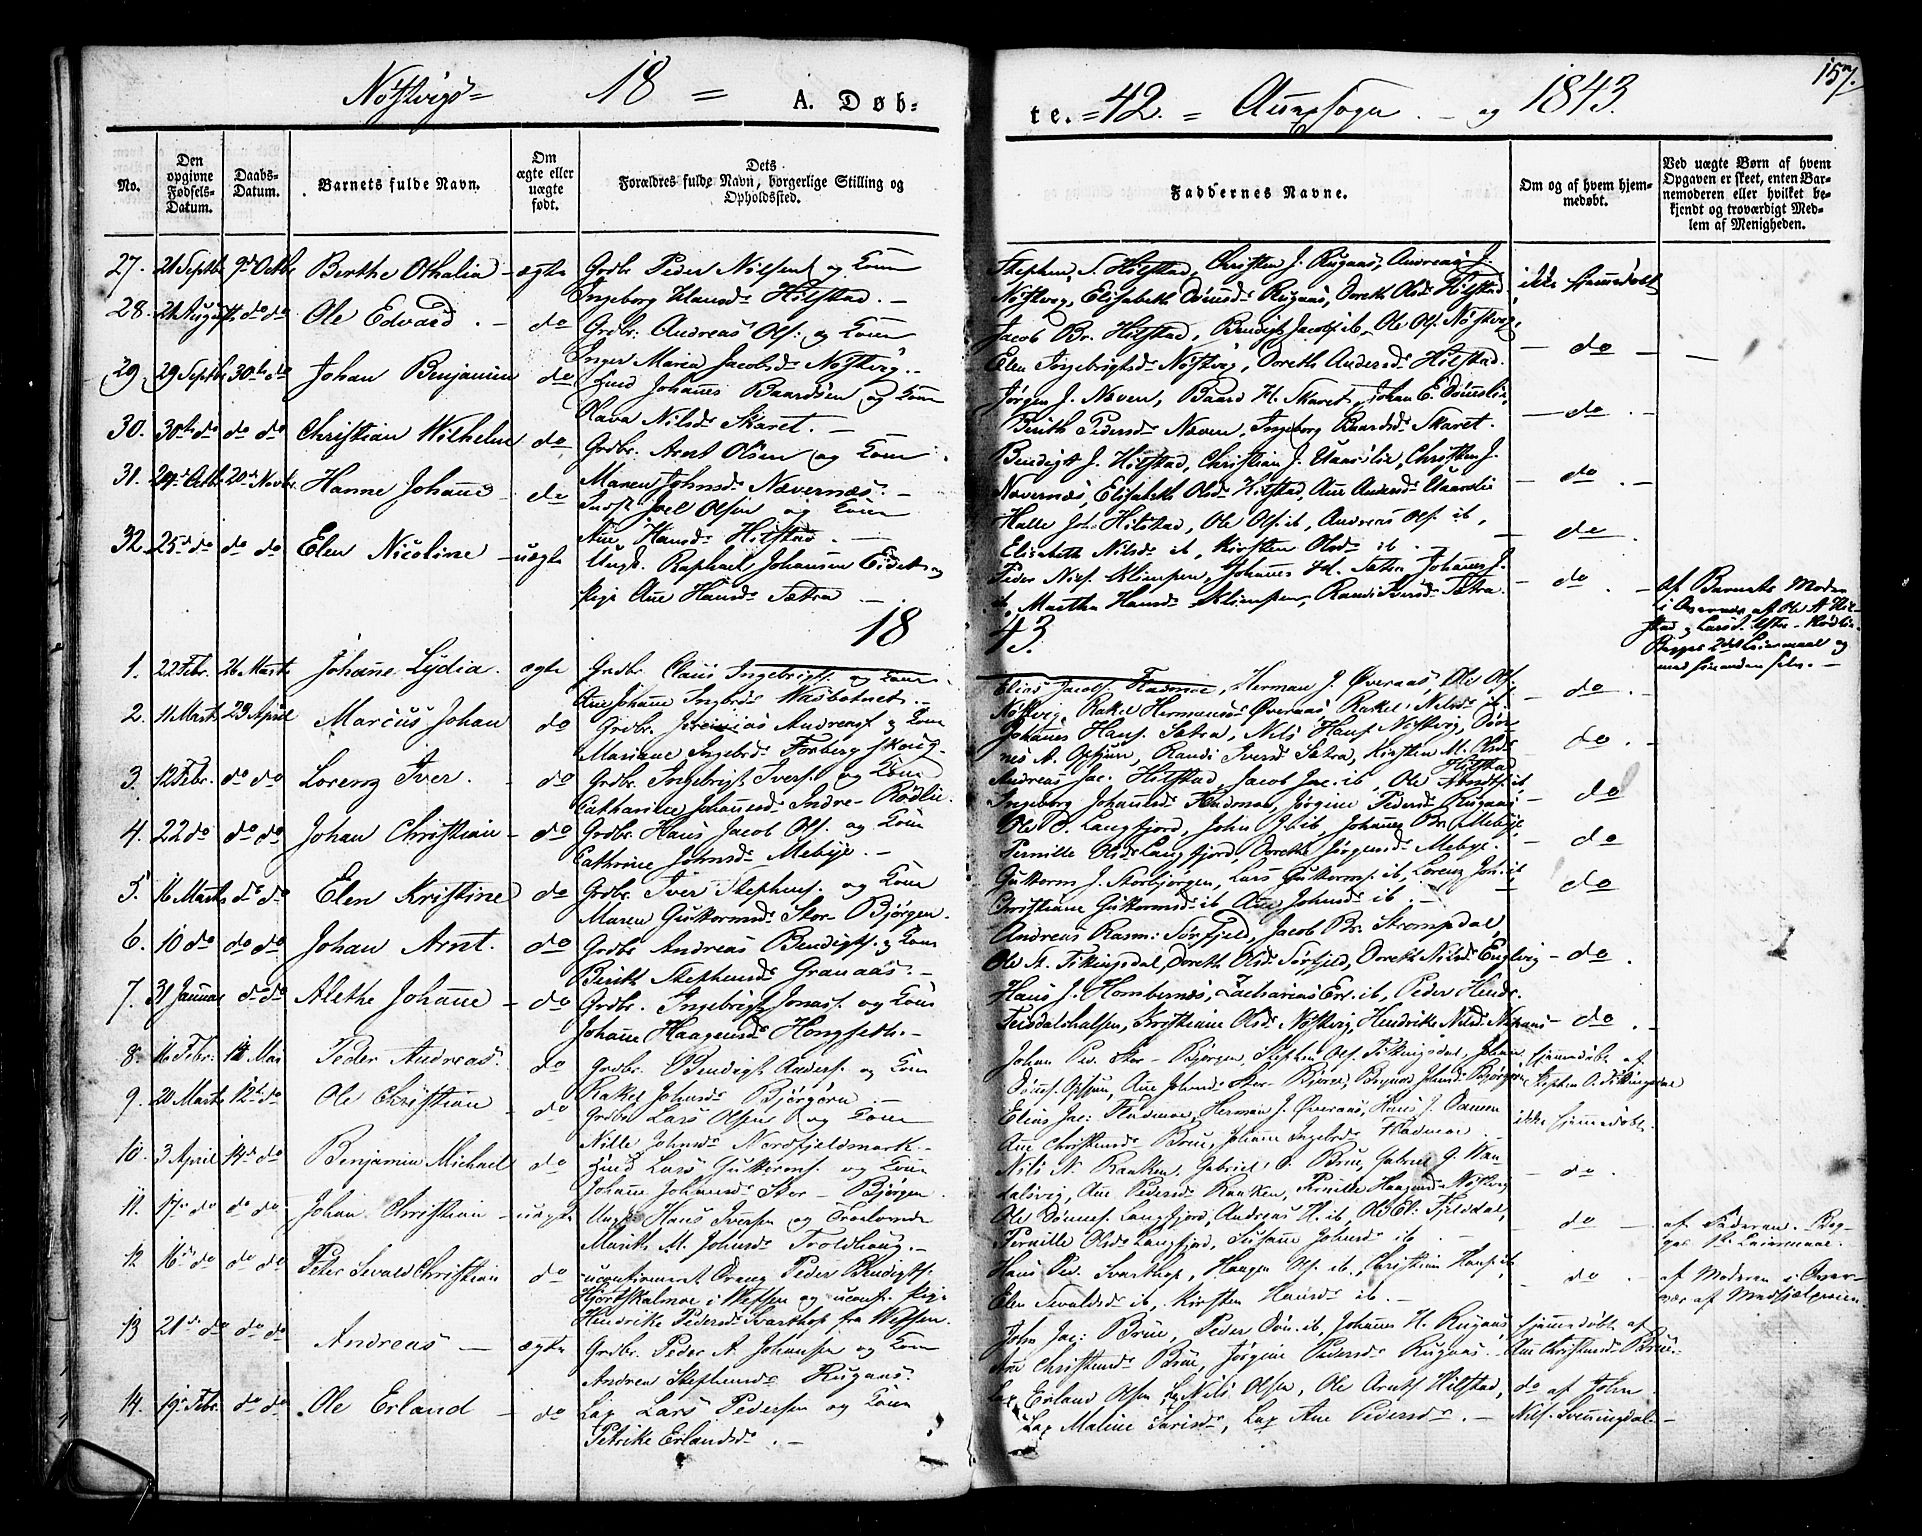 Nøstvigs= 18 = A. Døb-
te. = 42. = Annexsogn. - og 1843. 157.
No.
Den opgivne Fødsels-Datum.
Daabs-Datum.
Barnets fulde Navn.
Om ægte eller uægte født.
Dets Forældres fulde Navn, borgerlige Stilling og Opholdssted.
Faddernes Navne.
Om og af hvem hjemmedøbt.
Ved uægte Børn af hvem Opgaven er skeet, enten Barnemoderen eller hvilket bekjendt og troværdigt Medlem af Menigheden.
27. 21 Septbr 9de Octbr Berthe Othalia - ægte Grdbr. Peder Nilsen og Kone
Ingeborg Hansdr Hilstad. -
Stephen S. Hilstad, Christen J. Rugaas, Andreas J.
Nøstvig, Elisabeth Dønnisdr Rugaas, Doreth Olsdr Hilstad ikke hjemmedøbt
28. 21 August do do Ole Edvard. - do Grdbr. Andreas Ols. og Kone
Inger Maria Jacobsdr Nøstvig. -
Jacob Br. Hilstad, Bendigt Jacobs. ib, Ole Ols. Nøstvig,
Elen Ingebrigtsdr Nøstvig, Doreth Andersdr Hilstad. - do -
29. 29 Septbr 30te do Johan Benjamin do Huusmd Johannes Baardsen og Kone
Olava Nilsdr Skaret. -
Jørgen J. Næven, Baard H. Skaret, Johan E. Dønneslie,
Birith Pedersdr Næven, Ingeborg Baardsdr Skaret. - do -
30. 30te do do do Christian Wilhelm do Grdbr. Arnt Olsen og Kone
Maren Johnsdr Nævernæs. -
Bendigt J. Hilstad, Christian J. Haarslie, Christen J.
Nævernæs, Elisabeth Olsdr Hilstad, Ane Andersdr Haarslie - do -
31. 29de Octbr 20de Novbr. Hanne Johanne do Indst. Joel Olsen og Kone
Ane Hansdr Hilstad. -
Halle Joh. Hilstad, Ole Ols. ib, Andreas Ols. ib,
Elisabeth Nilsdr ib, Kirsten Olsdr ib. - do -
32. 25de do do do Elen Nicoline - uægte Ungk. Raphael Johansen Eidet og
Pige Ane Hansdr Sætra -
Peder Niels. Klimpen, Johannes H. Sætra, Johannes J.
ib, Martha Hansdr Klimpen, Randi Iversdr Sætra. - do -
af Barnets Moder
i Overvær af Ole A. Hil-
stad og Lars J. Ytter-Rødlie
Begges 2det Leiermaal og
med hinanden selv. -
18 43.
1. 22 Febr. 26 Marts Johanne Lydia. ægte Grdbr. Claus Ingebrigts. og Kone
Ane Johanne Ingebrsdr Vasbotnet. -
Elias Jacobs. Fladmoe, Herman J. Øveraas, Ole Ols.
Nøstvig, Rakel Hermansdr Øveraas, Rakel Nilsdr ib. - do -
2. 11 Marts 23 April Marcus Johan do Grdbr. Jeremias Andreas. og Kone
Mariane Ingebrsdr Forbergskoug.
Johannes Hans. Sætra, Nils Hans. Nøstvig, Døn-
nes A. Opsjøen, Randi Iversdr Sætra, Kirsten M. Olsdr Hilstad - do -
3. 12 Febr. do do Lorenz Iver. - do Grdbr. Ingebrigt Ivers. og Kone
Catharine Johannesdr Indre-Rødlie.
Andreas Jac. Hilstad, Jacob Jac. ib, Ole Arnts. ib,
Ingeborg Johannesdr Fladmoe, Jørgine Pedersdr Rugaas - do
4. 22 do do do Johan Christian - do Grdbr. Hans Jacob Ols. og Kone
Cathrine Johnsdr Mebye. -
Ole P. Langfjord, John J. ib, Johannes Br. Mebye,
Pernille Olsdr Langfjord, Dorethe Jørgensdr Mebye. - do
5. 16 Marts do do Elen Kristine do Grdbr. Iver Stephens. og Kone
Maren Guttormsdr Stor-Bjørgen.
Guttorm J. Storbjørgen, Lars Guttorms. ib, Lorenz Joh. ib
Christiane Guttormsdr ib, Ane Johnsdr ib. - do
6. 10 do do do Johan Arnt. do Grdbr. Andreas Bendigts. og Kone
Birith Stephensdr Granaas. -
Andreas Rasm: Sørfjeld, Jacob Br. Strompdal,
Ole A. Fikkingsdal, Doreth Olsdr Sørfjeld, Doreth Nilsdr Englvig - do.
7. 31 Januar do do Alethe Johanne - do Grdbr. Ingebrigt Jonas. og Kone
Johanne Haagensdr Hongseth. -
Hans J. Hombernæs, Zacharias Er. ib, Peder Henr.
Teisdalshalsen, Kristiane Olsdr Nøstvig, Hendrikke Nilsdr - do -
8. 16 Febr. 12 Mai Peder Andreas. do Grdbr. Bendigt Anders. og Kone
Rakel Johnsdr Bjørgøen. -
Johan Ped. Stor-Bjørgen, Stephen Ols. Fikkingsdal, Johan
Dønnes. Opsjøen, Ane Johnsdr Stor-Bjørgen, Johnsdr Bjørgøen hjemmedøbt af
Stephen O. Fikkingsdal
9. 20 Marts 12te do Ole Christian - do Grdbr. Lars Olsen og Kone
Nille Johnsdr Nordfjeldmark. -
Elias Jac: Fladmoe, Herman J. Øveraas, Hans J.
Ane Christensdr Brue, Johanne Ingebrsdr Fladmoe. ikke hjemmedøbt.
10. 3 April 14de do Benjamin Michael do Huusmd Lars Guttorms. og Kone
Johanne Johansdr Stor-Bjørgen.
Nils N. Ranken, Gabriel O. Brue, Gabriel G. Van-
dalsvig, Ane Pedersdr Ranken, Pernille Haagensdr Nøstvig - do
11. 17de do do do Johan Christian - uægte Ungk. Hans Iversen og Trolovede
Marith M. Johnsdr Troldhoug. -
Ole Dønnes. Langfjord, Andreas H. ib, Ole El. Fjeldal,
Pernille Olsdr Langfjord, Susanne Johnsdr ib. - do -
af Faderen. Beg-
ges 1ste Leiermaal.
12 16de do do do Peter Sevald Christian do uconfirmeret Dreng Peder Bendigts.
Hjortskalmoe i Vefsen og uconf. Pige
Hendrikke Pedersdr Svarthop, fra Vefsen.
Hans Ped. Svarthop, Haagen Ols. ib, Christian Hans. ib,
Elen Sevaldsdr ib, Kirsten Hansdr ib. - do -
af Moderen i Over-
vær af Medhjælperen
13 21de do do do Andreas - ægte Grdbr. Peder A. Johansen og Kone
Andrea Stephensdr Rugaas.
John Jac: Brue, Peder Døn. ib, Johannes H. Rugaas,
Ane Christensdr Brue, Jørgine Pedersdr Rugaas. - hjemmedøbt af
Ane Christensdr Brue.
14. 19de Febr. do do Ole Erland - do Lap Lars Pedersen og Kone
Petrike Erlandsdr. -
Lap Erland Olsen, Lap Nils Olsen, Ole Arnts. Hilstad,
Lap Maline Larsdr, Lap Ane Pedersdr. - do af John
Nils. Svenningdal -